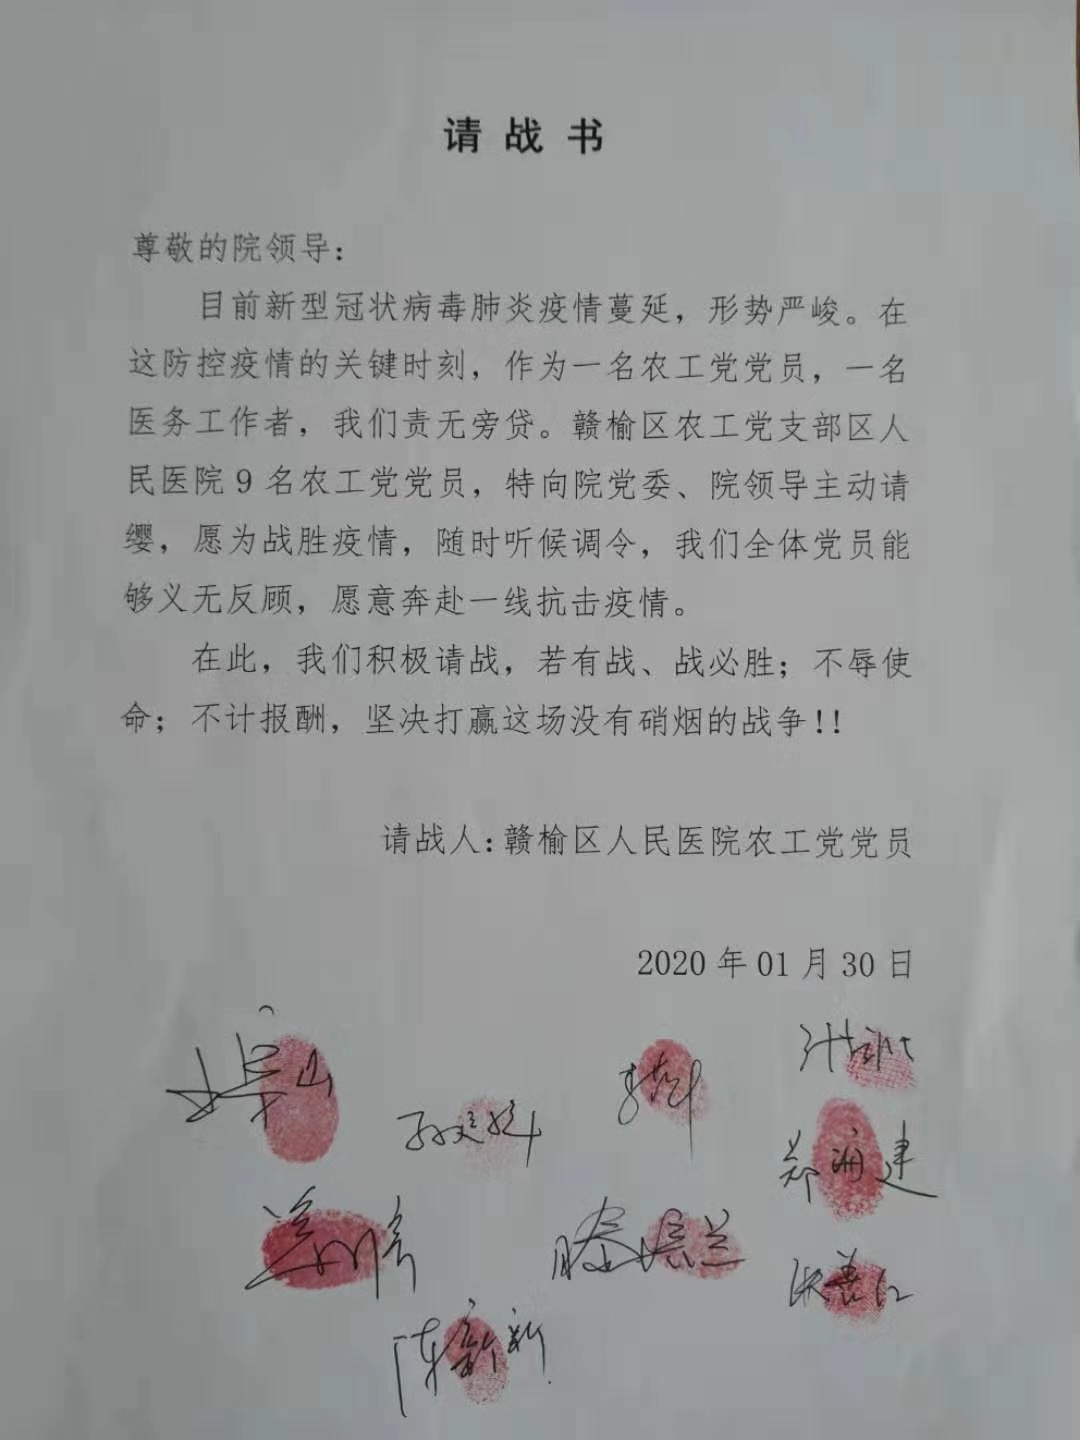 请战书
尊敬的院领导：
目前新型冠状病毒肺炎疫情蔓延，形势严峻。在
这防控疫情的关键时刻，作为一名农工党党员，一名
医务工作者，我们责无旁贷。赣榆区农工党支部区人
民医院9名农工党党员，特向院党委、院领导主动请
缨，愿为战胜疫情，随时听候调令，我们全体党员能
够义无反顾，愿意奔赴一线抗击疫情。
在此，我们积极请战，若有战、战必胜；不辱使
命；不计报酬，坚决打赢这场没有硝烟的战争!!
请战人：赣榆区人民医院农工党党员
2020年01月30日